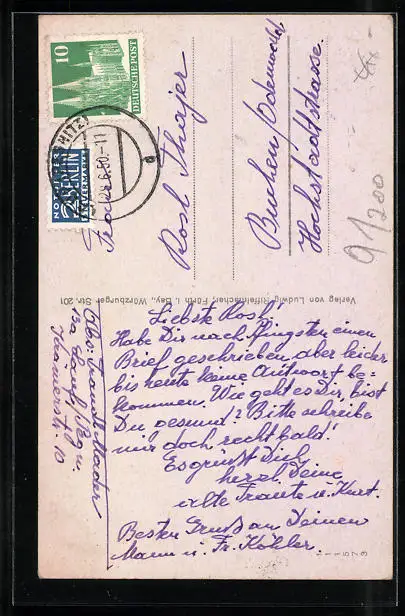 10
DEUTSCHE POST
NOTOPFER
2 BERLIN
STEUERMARKE
28.6.50.-11
a
Frau
Rosl Thajer
Buchen/Odenwald
Hochstadtstrasse.
91200
Verlag von Ludwig Riffelmacher, Fürth i. Bay., Würzburger Str. 201
Liebste Rosl!
Habe Dir nach Pfingsten einen
Brief geschrieben aber leider
bis heute keine Antwort be=
kommen. Wie geht es Dir, bist
Du gesund? Bitte schreibe
mir doch recht bald!
Es grüsst Dich
herzl. Deine
alte Traute u. Kurt.
Besten Gruß an Deinen
Mann u. Fr. Köhler.
111573
Abs: Traute